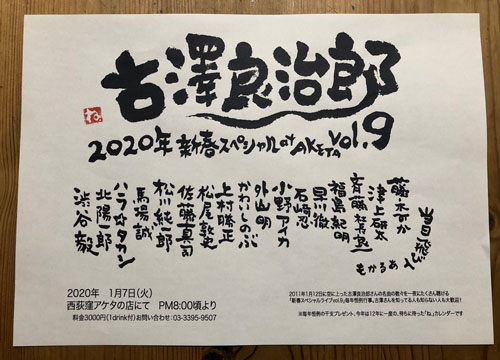 古澤良治郎
ね。
2020年 新春スペシャル at AKETA Vol.9
当日飛び入りもあるかも
津上研太
福島紀明
早川徹
石崎忍
小野アイカ
外山明
かわいしのぶ
上村勝正
松尾敦史
佐藤真司
松川純一郎
馬場誠
北陽一郎
渋谷毅
2020年 1月7日(火)
西荻窪アケタの店にて PM8:00頃より
料金3000円(1drink付)お問い合わせ:03-3395-9507
2011年1月12日に空に上った古澤良治郎さんの名曲の数々を一夜にたくさん聴ける
「新春スペシャルライブvol.9」毎年恒例行事。古澤さんを知ってる人も知らない人も大歓迎!
※毎年恒例の干支プレゼント、今年は12年に一度の、待ちに待った「ね。」カレンダーです